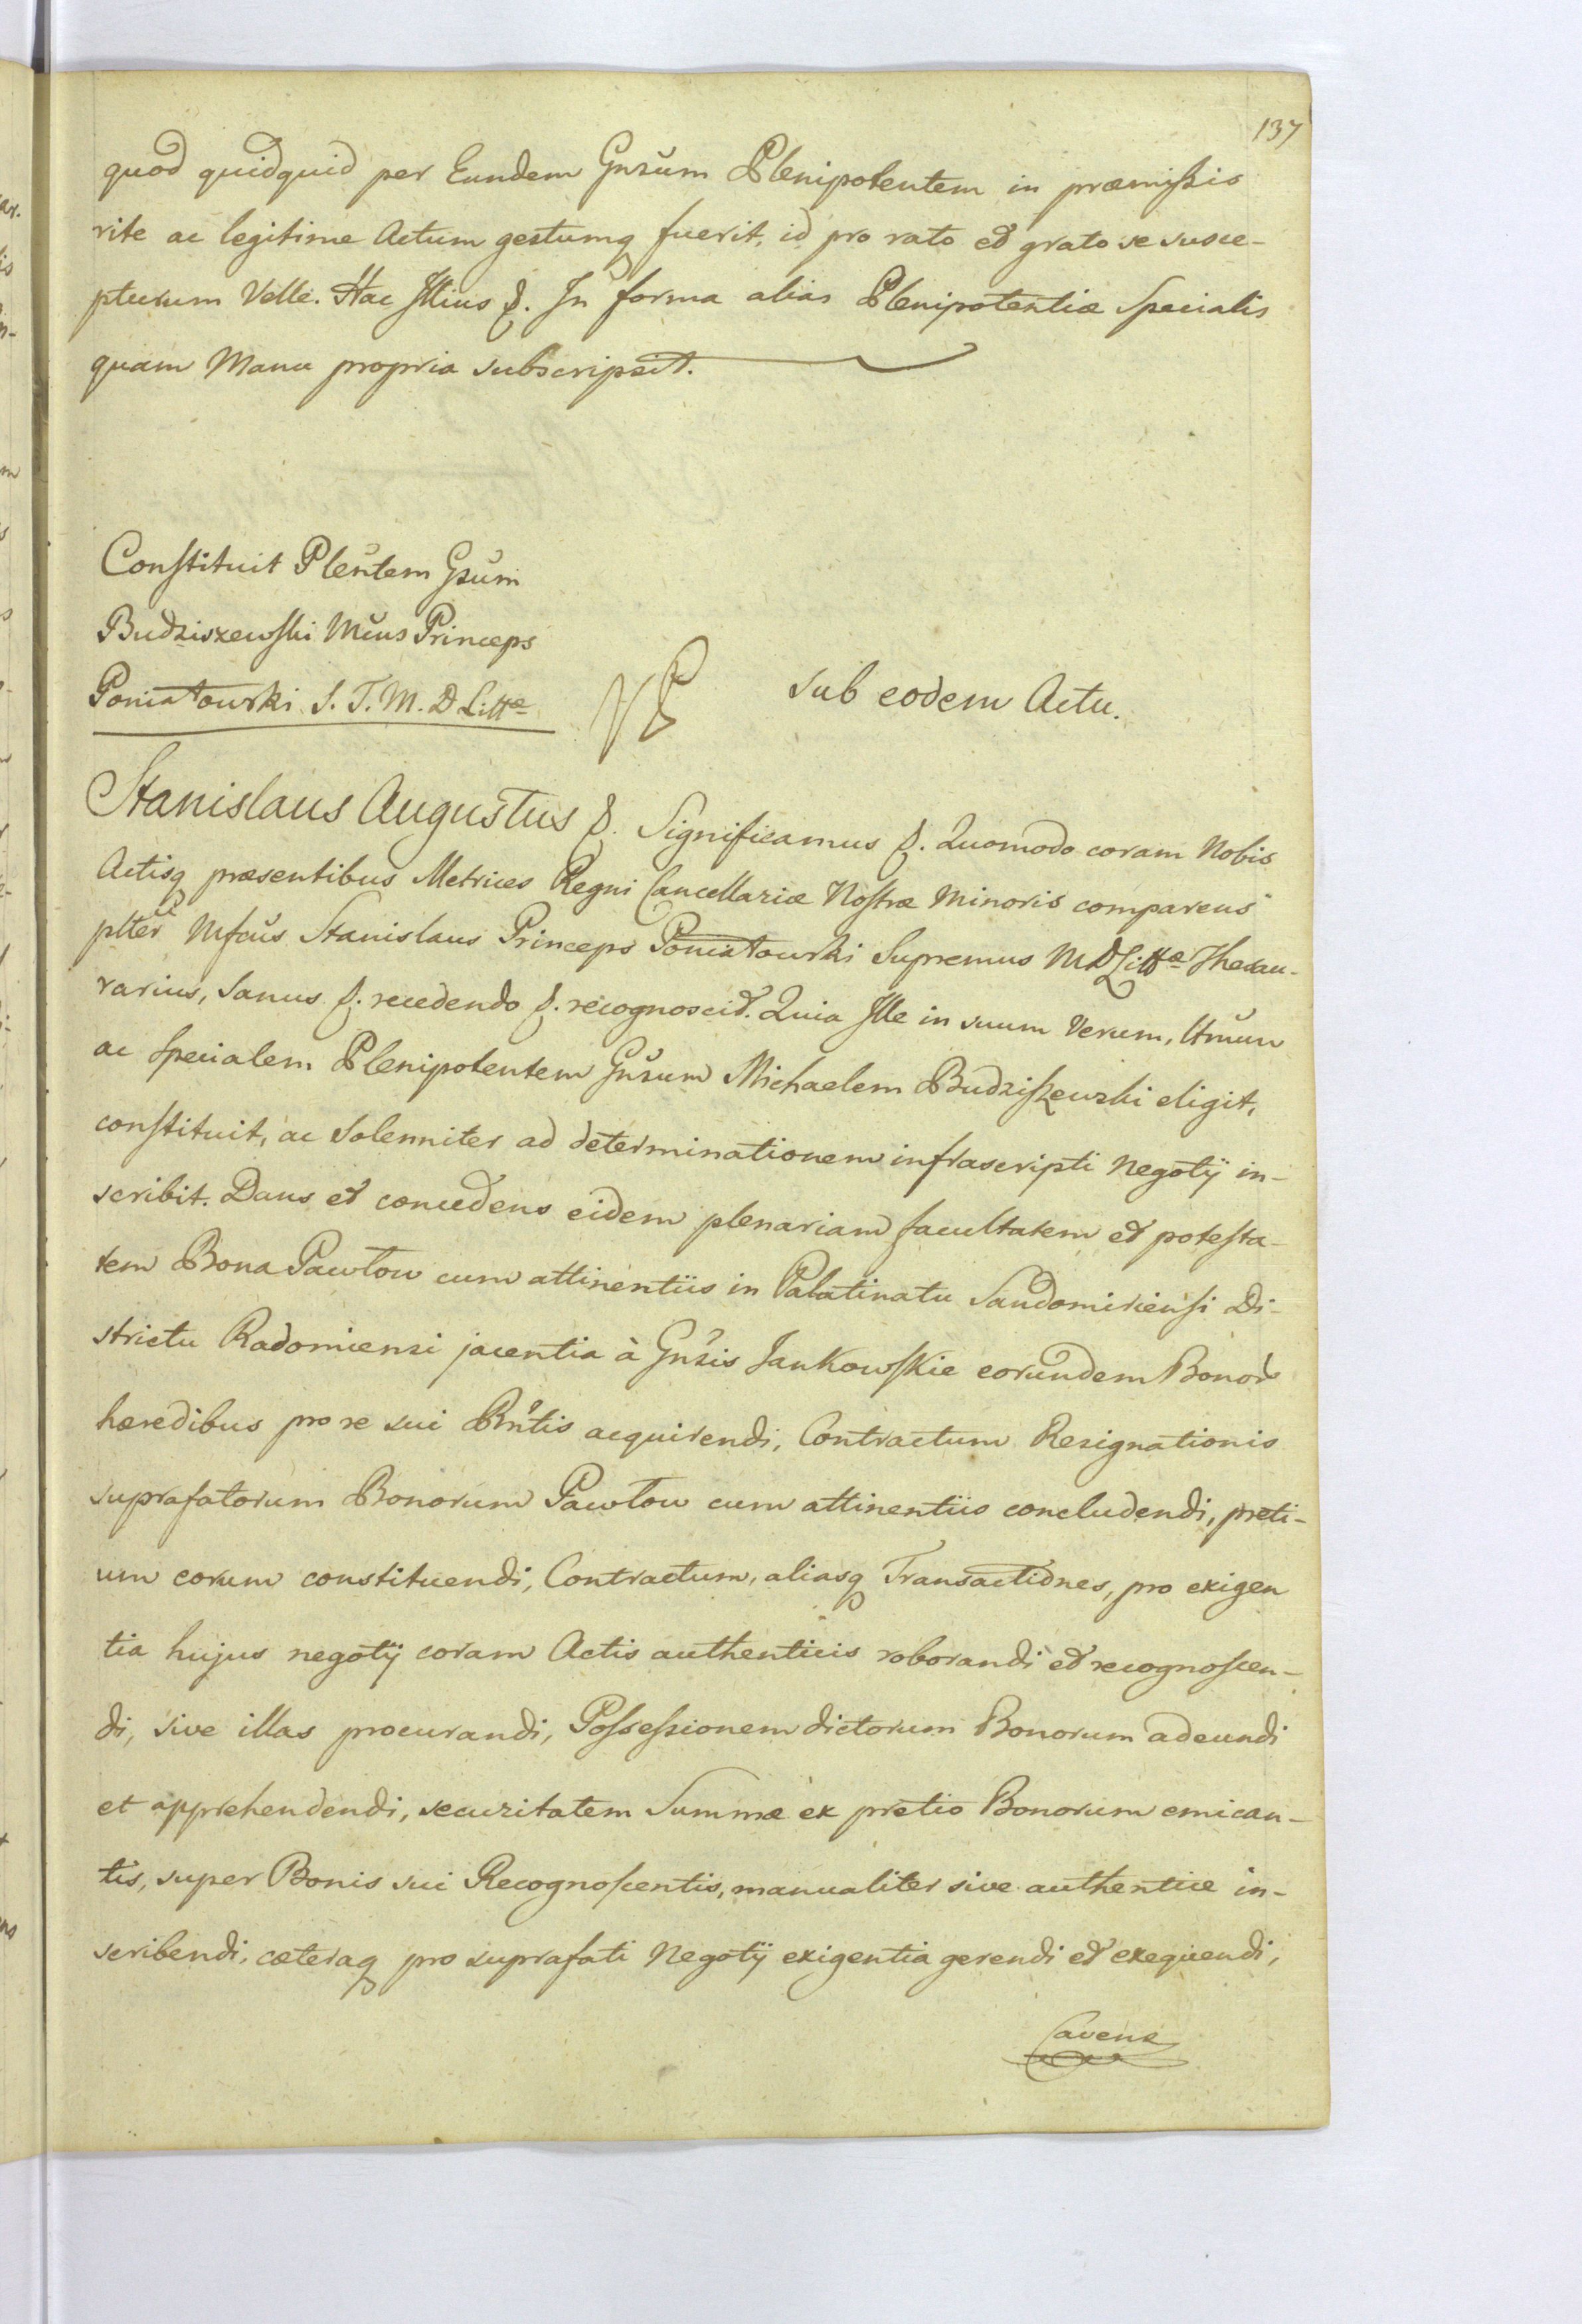 137
quod quidquid per Eundem Gnsum Plenipotentem in præmissis
rite ac legitime Actum gestumq fuerit, id pro rato et grato se susce-
pturum Velle. Hac Illius &. In forma alias Plenipotentiæ Specialis
quam Manu propria subscripsit.
Constituit Plentem Gsum
Budziszewski Mcus Princeps
Poniatowski S. T. M. D Littæ
sub eodem Actu.
Stanislaus Augustus &. Significamus &. Quomodo coram Nobis
Actisq præsentibus Metrices Regni Cancellariæ Nostræ Minoris comparens
plter Mfcus Stanislaus Princeps Poniatowski Supremus M D Littæ Thesau-
rarius, Sanus &. recedendo &. recognoscit. Quia Ille in suum Verum, Ltmum
ac specialem Plenipotentem Gnsum Michaelem Budziszewski eligit,
constituit, ac Solenniter ad determinationem infrascripti Negotÿ in-
scribit. Dans et concedens eidem plenariam facultatem et potesta-
tem Bona Pawłow cum attinentiis in Palatinatu Sandomiriensi Di-
strictu Radomiensi jacentia à Gnsis Jankowskie eorundem Bonor
hæredibus pro re sui Pntis acquirendi, Contractum Resignationis
suprafatorum Bonorum Pawłow cum attinentiis concludendi, preti-
um eorum constituendi, Contractum, aliasq Transactiones, pro exigen
tia hujus negotÿ coram Actis authenticis roborandi et recognoscen-
di, sive illas procurandi, Possessionem dictorum Bonorum adeundi
et apprehendendi, securitatem Summæ ex pretio Bonorum emican-
tis, super Bonis sui Recognoscentis, manualiter sive authentice in-
scribendi, cæteraq pro suprafati Negotÿ exigentia gerendi et exequendi,
Cavens